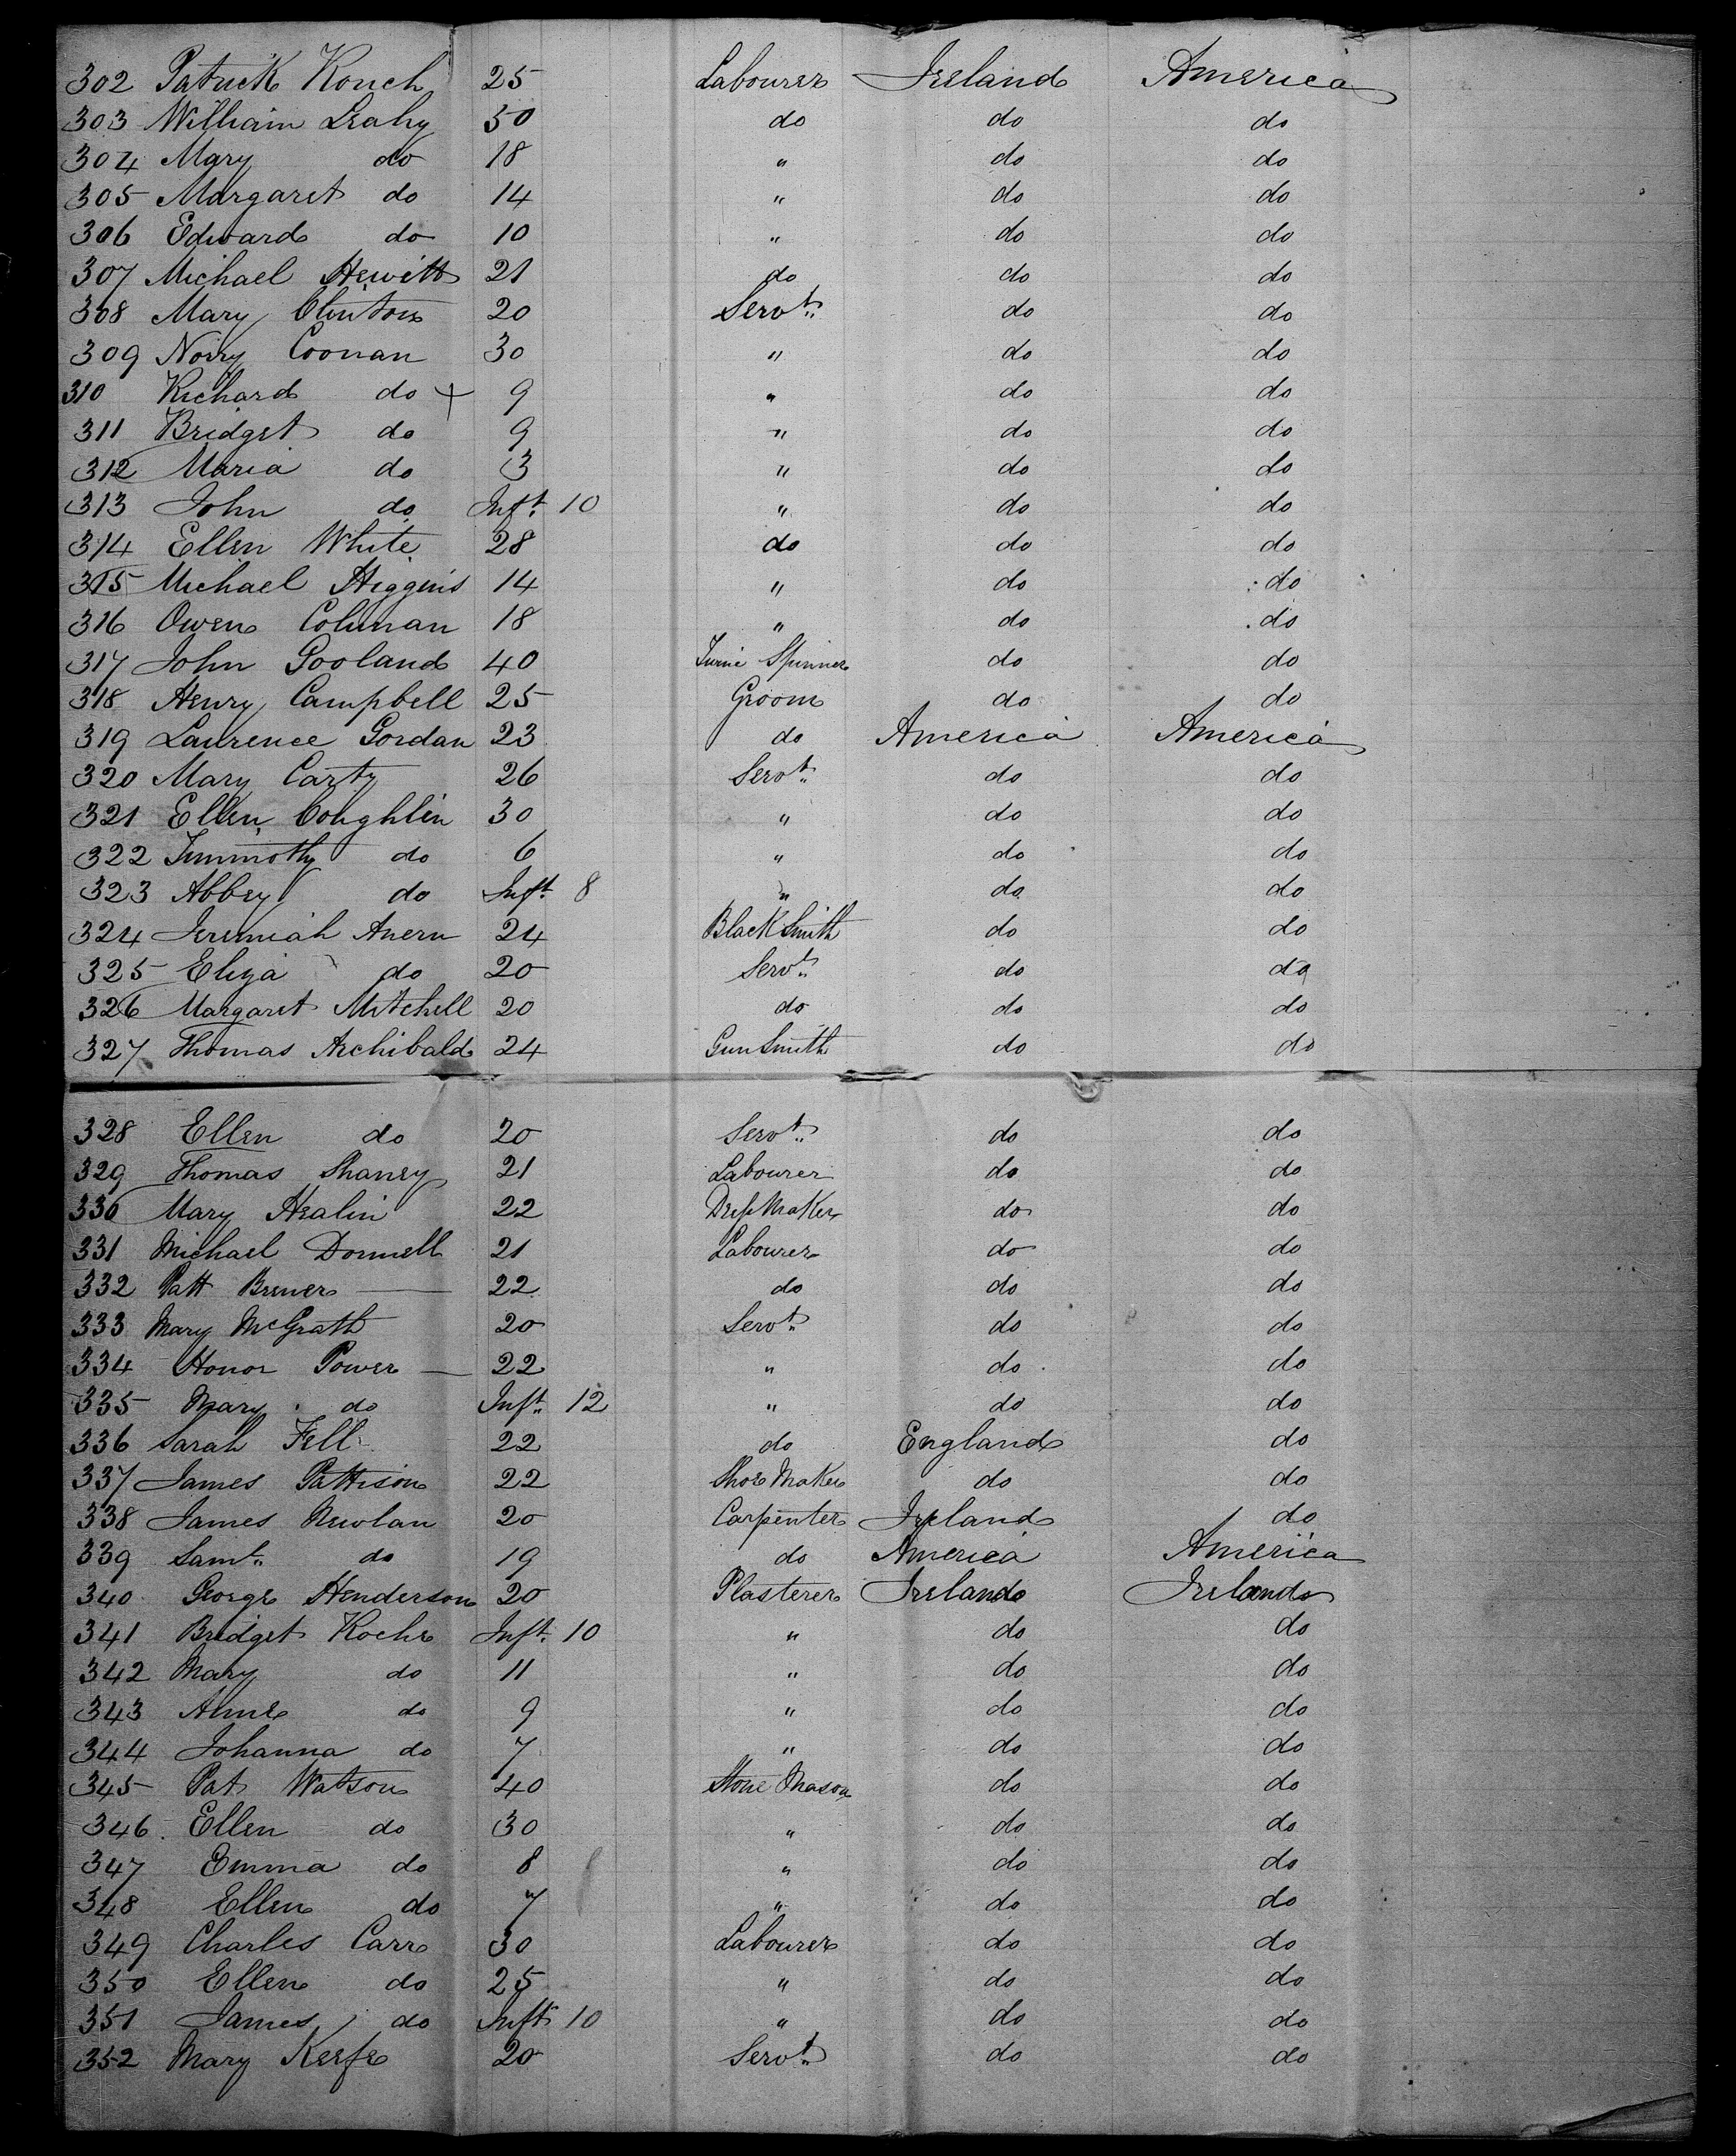 302 Patrick Kouch 25 Labourer Ireland America
303 William Leahy 50 do do do
304 Mary do 18 " do do
305 Margaret do 14 " do do
306 Edward do 10 " do do
307 Michael Hewitt 21 do do do
308 Mary Clinton 20 Servt. do do
309 Norry Coonan 30 " do do
310 Richard do + 9 " do do
311 Bridget do 9 " do do
312 Maria do 3 " do do
313 John do Inft. 10 " do do
314 Ellen White 28 do do do
315 Michael Higgins 14 " do do
316 Owen Colman 18 " do do
317 John Gooland 40 Spinner do do
318 Henry Campbell 25 Groom do do
319 Laurence Gordan 23 do America America
320 Mary Carty 26 Servt. do do
321 Ellen Coughlin 30 " do do
322 Timmothy do 6 " do do
323 Abbey do Inft. 8 " do do
324 Jeremiah Ahern 24 BlackSmith do do
325 Eliza do 20 Servt. do do
326 Margaret Mitchell 20 do do do
327 Thomas Archibald 24 GunSmith do do
328 Ellen do 20 Servt. do do
329 Thomas Shaney 21 Labourer do do
330 Mary Healin 22 DressMaker do do
331 Michael Donnell 21 Labourer do do
332 Patt Brewer 22 do do do
333 Mary McGrath 20 Servt. do do
334 Honor Power 22 " do do
335 Mary do Inft. 12 " do do
336 Sarah Fell 22 do England do
337 James Pattison 22 Shoe Maker do do
338 James Newlan 20 Carpenter Ireland do
339 Saml. do 19 do America America
340 George Henderson 20 Plasterer Ireland Ireland
341 Bridget Roche Inft. 10 " do do
342 Mary do 11 " do do
343 Anne do 9 " do do
344 Johanna do 7 " do do
345 Pat Watson 40 Stone Mason do do
346 Ellen do 30 " do do
347 Emma do 8 " do do
348 Ellen do 7 " do do
349 Charles Carr 30 Labourer do do
350 Ellen do 25 " do do
351 James do Inft 10 " do do
352 Mary Keefe 20 Servt. do do